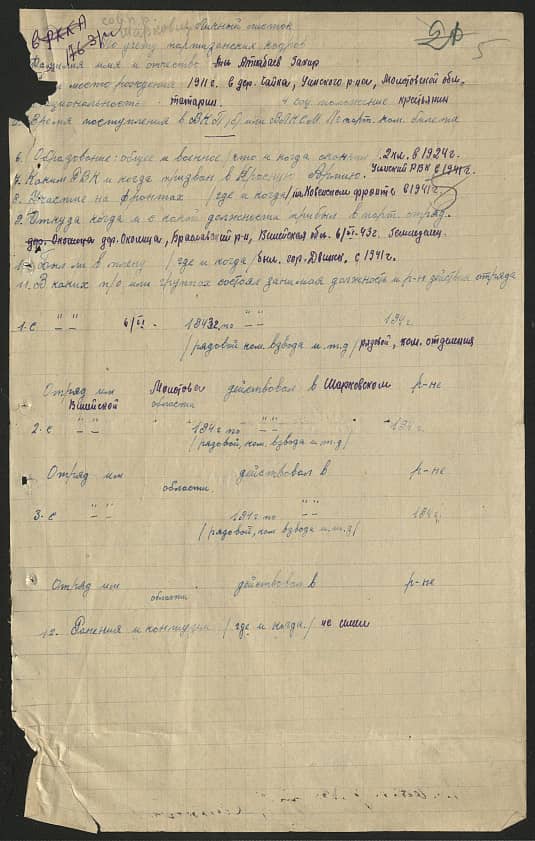 в РККА
Личный листок
по учету партизанских кадров
Фамилия имя и отчество
место рождения 1911 г. в дер. Сайка, Уинского р-на, Молотовской обл.
национальность татарин. 4 соц. положение крестьянин
5. Время поступления в ВКП(б) или ВЛКСМ № парт. ком. билета
6. Образование: общее и военное /что и когда окончил 2 кл. в 1924 г.
7. Каким РВК и когда призван в Красную Армию. Уинский РВК в 1941 г.
8. Участие на фронтах /где и когда/ в 1941 г.
9. Откуда когда и с какой должности прибыл в парт. отряд.
дер. Околица, Браславский р-н, Вилейская обл. 6/VI-43 г.
10. Был ли в плену /где и когда/ был. гор. Двинск. с 1941 г.
11. В каких п/о или группах состоял занимая должность и р-н действия отряда
1. с " " 6/VI 1943 г. по " " 194 г.
/рядовой ком. взвода и. т. д/ рядовой, ком. отделения
Отряд им Молотова действовал в Шарковском р-не
Вилейской области
2. с " " 194 г. по " " 194 г.
/рядовой, ком. взвода и т. д/
Отряд им действовал в р-не
области
3. с " " 194 г. по " " 194 г.
/рядовой, ком взвода и. т. д/
Отряд им действовал в р-не
области
12. Ранения и контузии /где и когда/ не имел